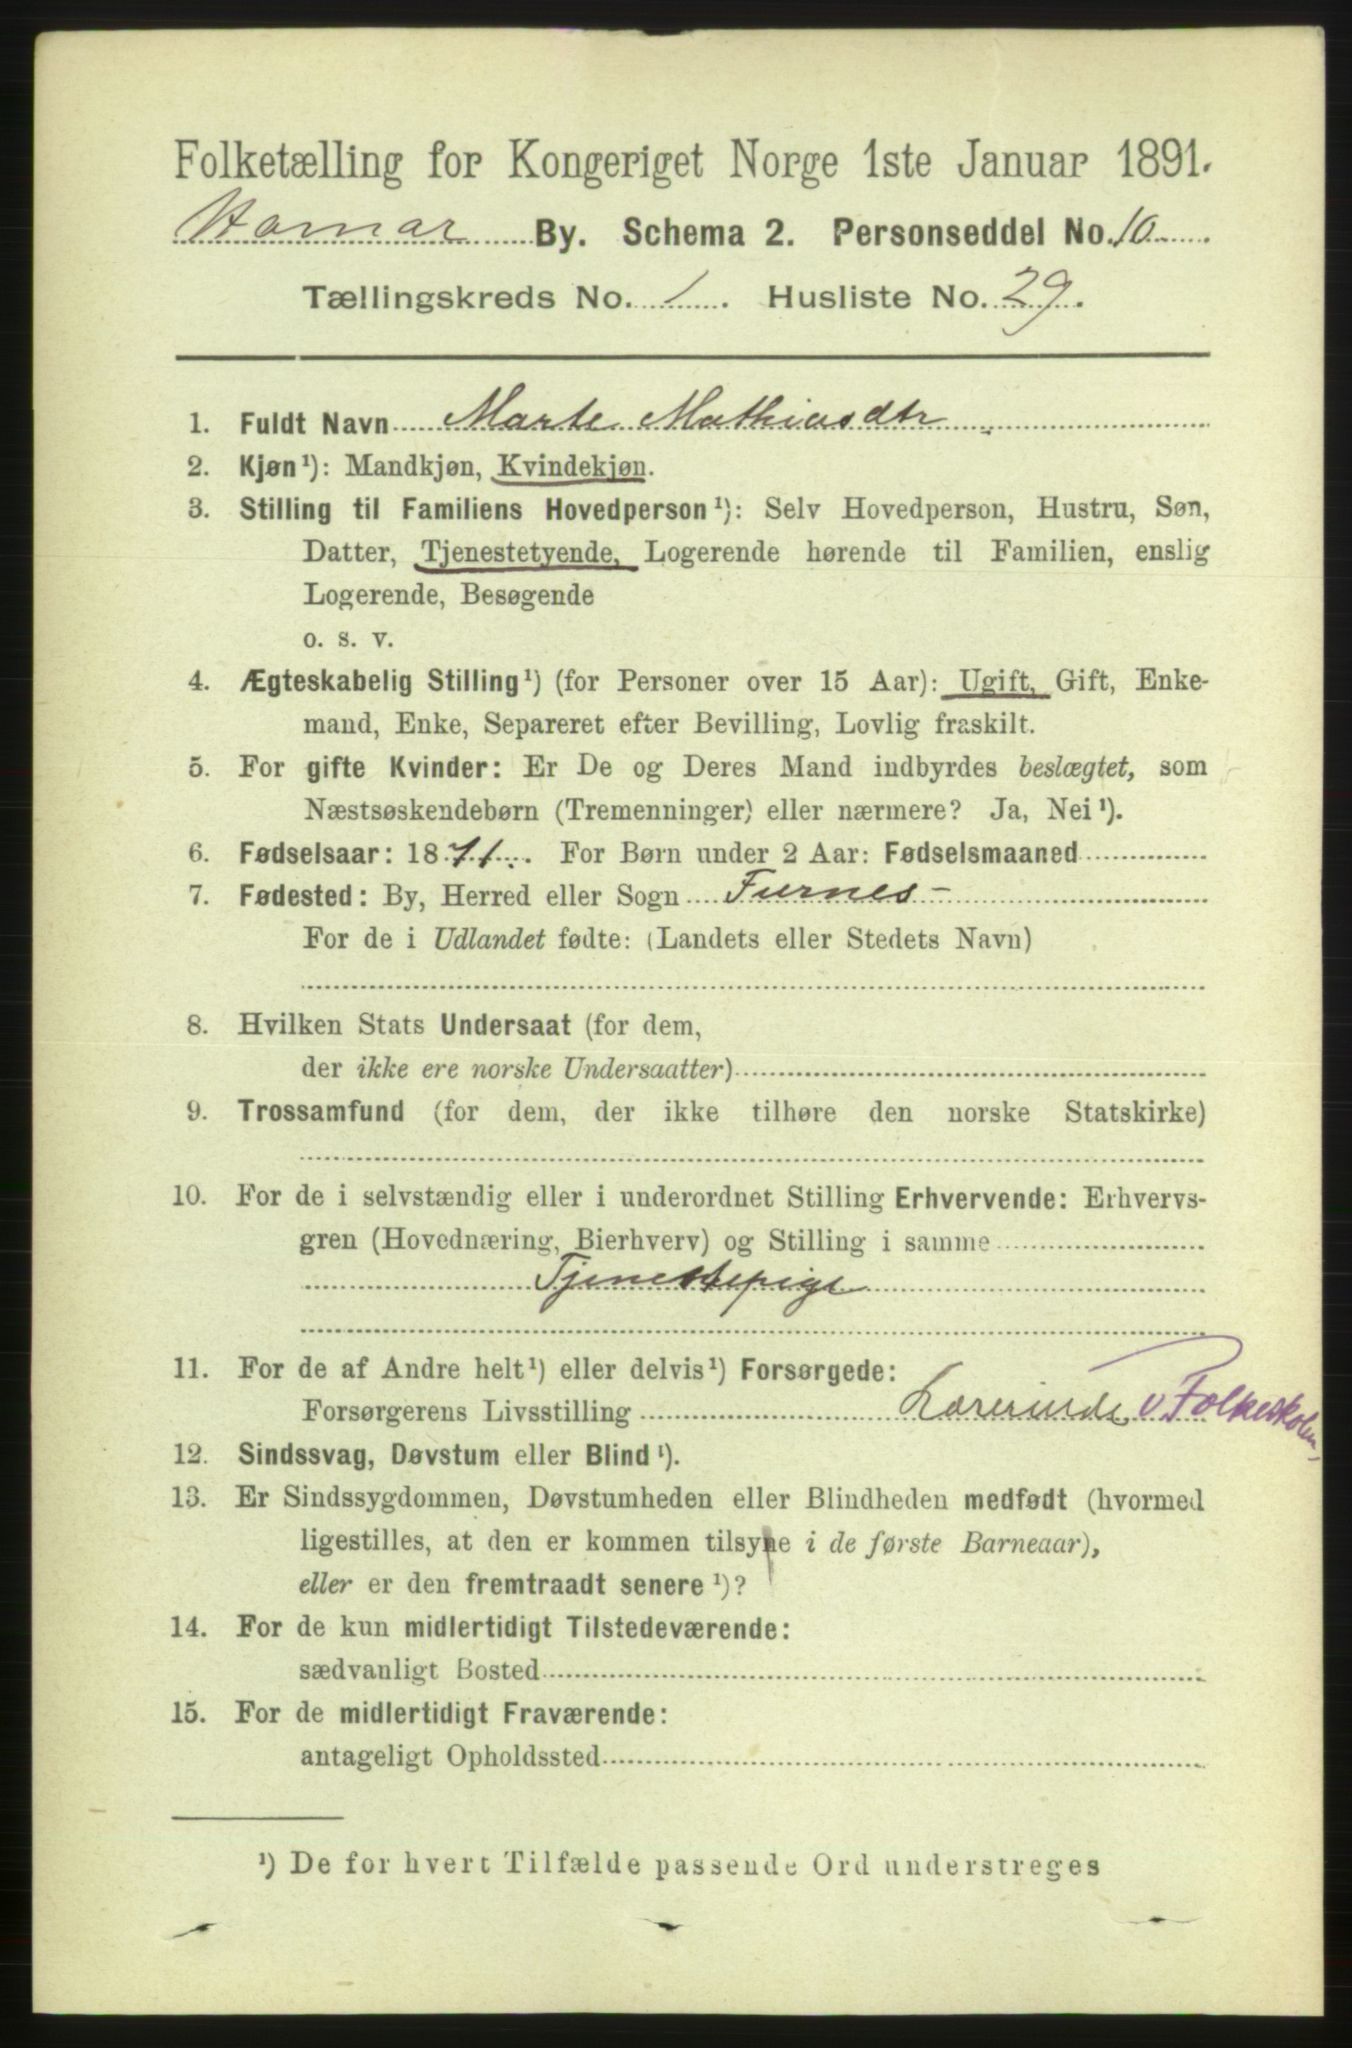 Folketælling for Kongeriget Norge 1ste Januar 1891.
Hamar By. Schema 2. Personseddel No. 10
Tællingskreds No. 1. Husliste No. 29.
1. Fuldt Navn Marte Mathiasdtr
2. Kjøn¹): Mandkjøn, Kvindekjøn.
3. Stilling til Familiens Hovedperson¹): Selv Hovedperson, Hustru, Søn,
Datter, Tjenestetyende, Logerende hørende til Familien, enslig
Logerende, Besøgende
o. s. v.
4. Ægteskabelig Stilling¹) (for Personer over 15 Aar): Ugift, Gift, Enke-
mand, Enke, Separeret efter Bevilling, Lovlig fraskilt.
5. For gifte Kvinder: Er De og Deres Mand indbyrdes beslægtet, som
Næstsøskendebørn (Tremenninger) eller nærmere? Ja, Nei¹).
6. Fødselsaar: 1871. For Børn under 2 Aar: Fødselsmaaned
7. Fødested: By, Herred eller Sogn Furnes -
For de i Udlandet fødte: (Landets eller Stedets Navn)
8. Hvilken Stats Undersaat (for dem,
der ikke ere norske Undersaatter)
9. Trossamfund (for dem, der ikke tilhøre den norske Statskirke)
10. For de i selvstændig eller i underordnet Stilling Erhvervende: Erhvervs-
gren (Hovednæring, Bierhverv) og Stilling i samme
Tjenestepige
11. For de af Andre helt¹) eller delvis¹) Forsørgede:
Forsørgerens Livsstilling Lærerinde v Folkeskolen
12. Sindssvag, Døvstum eller Blind¹).
13. Er Sindssygdommen, Døvstumheden eller Blindheden medfødt (hvormed
ligestilles, at den er kommen tilsyne i de første Barneaar),
eller er den fremtraadt senere¹)?
14. For de kun midlertidigt Tilstedeværende:
sædvanligt Bosted
15. For de midlertidigt Fraværende:
antageligt Opholdssted
¹) De for hvert Tilfælde passende Ord understreges